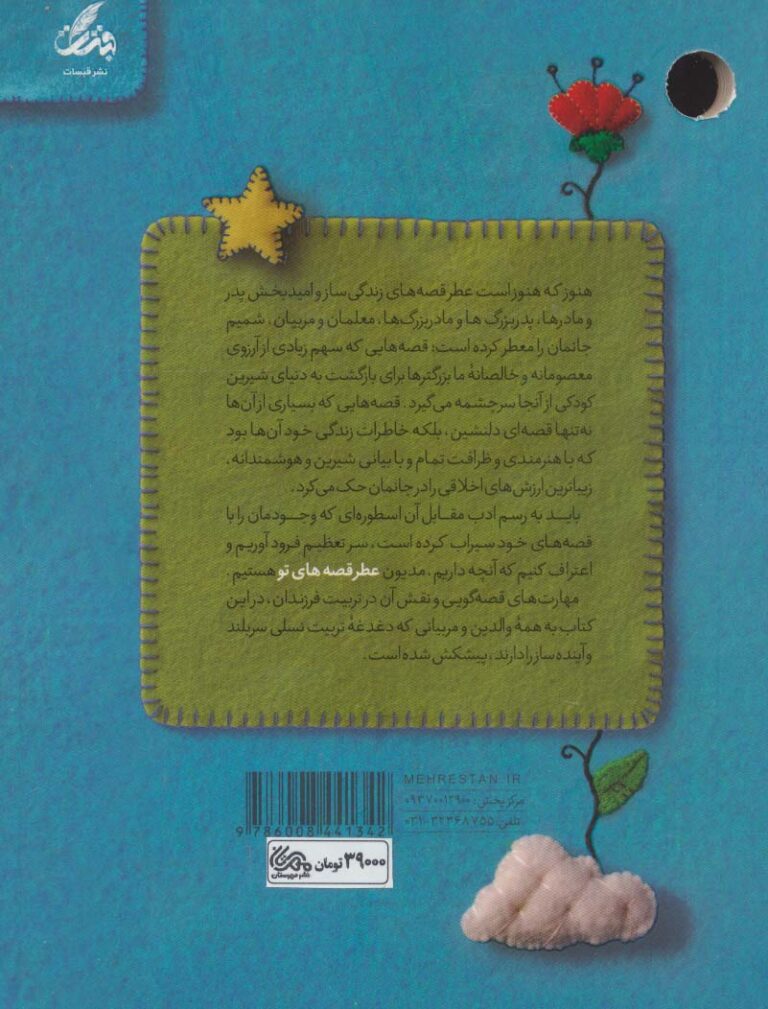 نشر قبسات
هنوز که هنوز است عطر قصه‌های زندگی‌ساز و امیدبخش پدر
و مادرها، پدربزرگ ها و مادربزرگ‌ها، معلمان و مربیان، شمیم
جانمان را معطر کرده است؛ قصه‌هایی که سهم زیادی از آرزوی
معصومانه و خالصانهٔ ما بزرگترها برای بازگشت به دنیای شیرین
کودکی از آنجا سرچشمه می‌گیرد. قصه‌هایی که بسیاری از آن‌ها
نه‌تنها قصه‌ای دلنشین، بلکه خاطرات زندگی خود آن‌ها بود
که با هنرمندی و ظرافت تمام و با بیانی شیرین و هوشمندانه،
زیباترین ارزش‌های اخلاقی را در جانمان حک می‌کرد.
باید به رسم ادب مقابل آن اسطوره‌ای که وجودمان را با
قصه‌های خود سیراب کرده است، سر تعظیم فرود آوریم و
اعتراف کنیم که آنچه داریم، مدیون عطر قصه های تو هستیم.
مهارت‌های قصه‌گویی و نقش آن در تربیت فرزندان، در این
کتاب به همهٔ والدین و مربیانی که دغدغهٔ تربیت نسلی سربلند
و آینده‌ساز را دارند، پیشکش شده است.
MEHRESTAN.IR
مرکز پخش: ۰۹۳۷۰۰۱۲۹۰۰
تلفن: ۰۳۱-۳۲۳۶۸۷۵۵
9 786008 441342
۳۹۰۰۰ تومان
مهرستان
نشر مهرستان